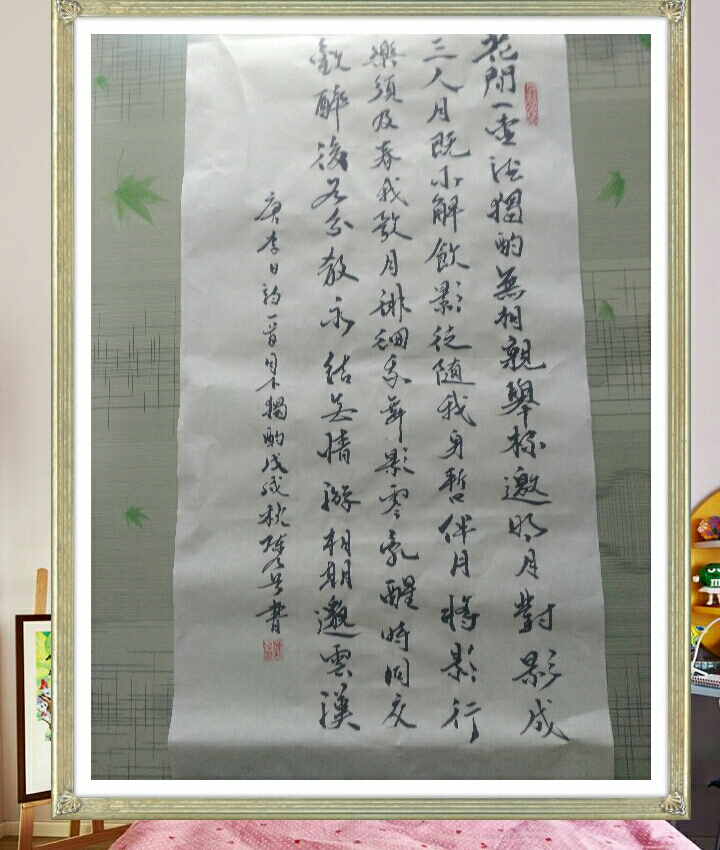 花間一壺酒獨酌無相親舉杯邀明月對影成
三人月既不解飲影徒隨我身暫伴月將影行
樂須及春我歌月徘徊我舞影零亂醒時同交
歡醉後各分散永結無情遊相期邈雲漢
唐李白詩一首月下獨酌戊戌秋陳書